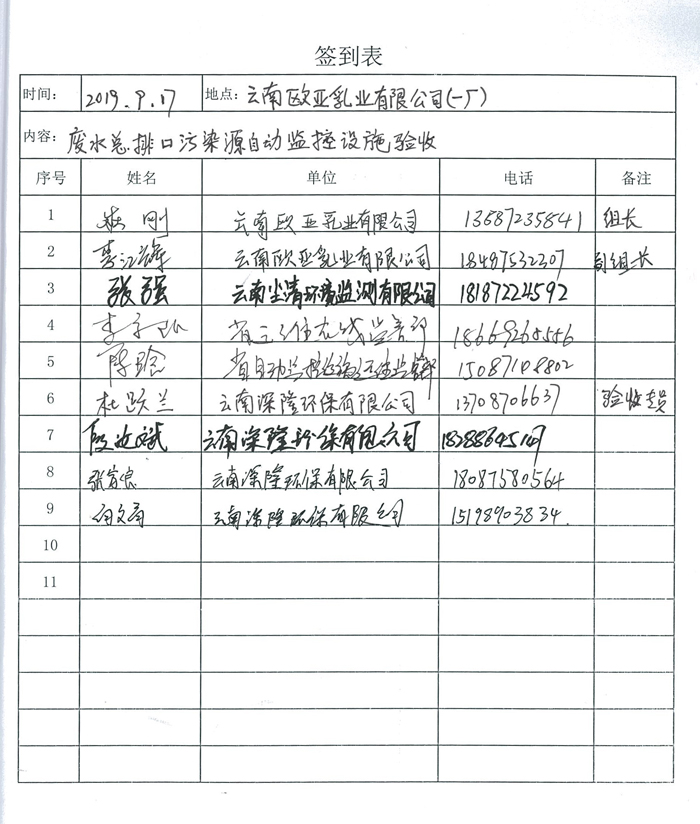 签到表
时间： 2019.9.17 地点：云南欧亚乳业有限公司(一厂)
内容：废水总排口污染源自动监控设施验收
序号 姓名 单位 电话 备注
1 刚 云南欧亚乳业有限公司 13687235841 组长
2 李江 云南欧亚乳业有限公司 18497532307 副组长
3 张强 云南尘清环境监测有限公司 18187224592
4 李 省 18669265556
5 陈 省自动监控 15087108802
6 杜跃兰 云南深隆环保有限公司 13708706637 验收专员
7 段 云南深隆环保有限公司
8 张 云南深隆环保有限公司 18087580564
9 文 云南深隆环保有限公司 15198903834.
10
11